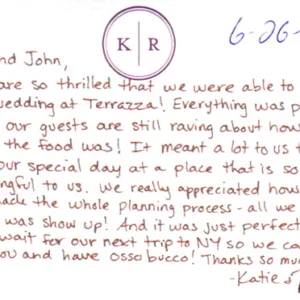 K R
6-26-
nd John,
are so thrilled that we were able to
wedding at Terrazza! Everything was p
our guests are still raving about how
the food was! It meant a lot to us t
our special day at a place that is so
ngful to us. We really appreciated how
made the whole planning process - all we
was show up! And it was just perfect
wait for our next trip to NY so we ca
you and have osso bucco! Thanks so muc
-Katie &